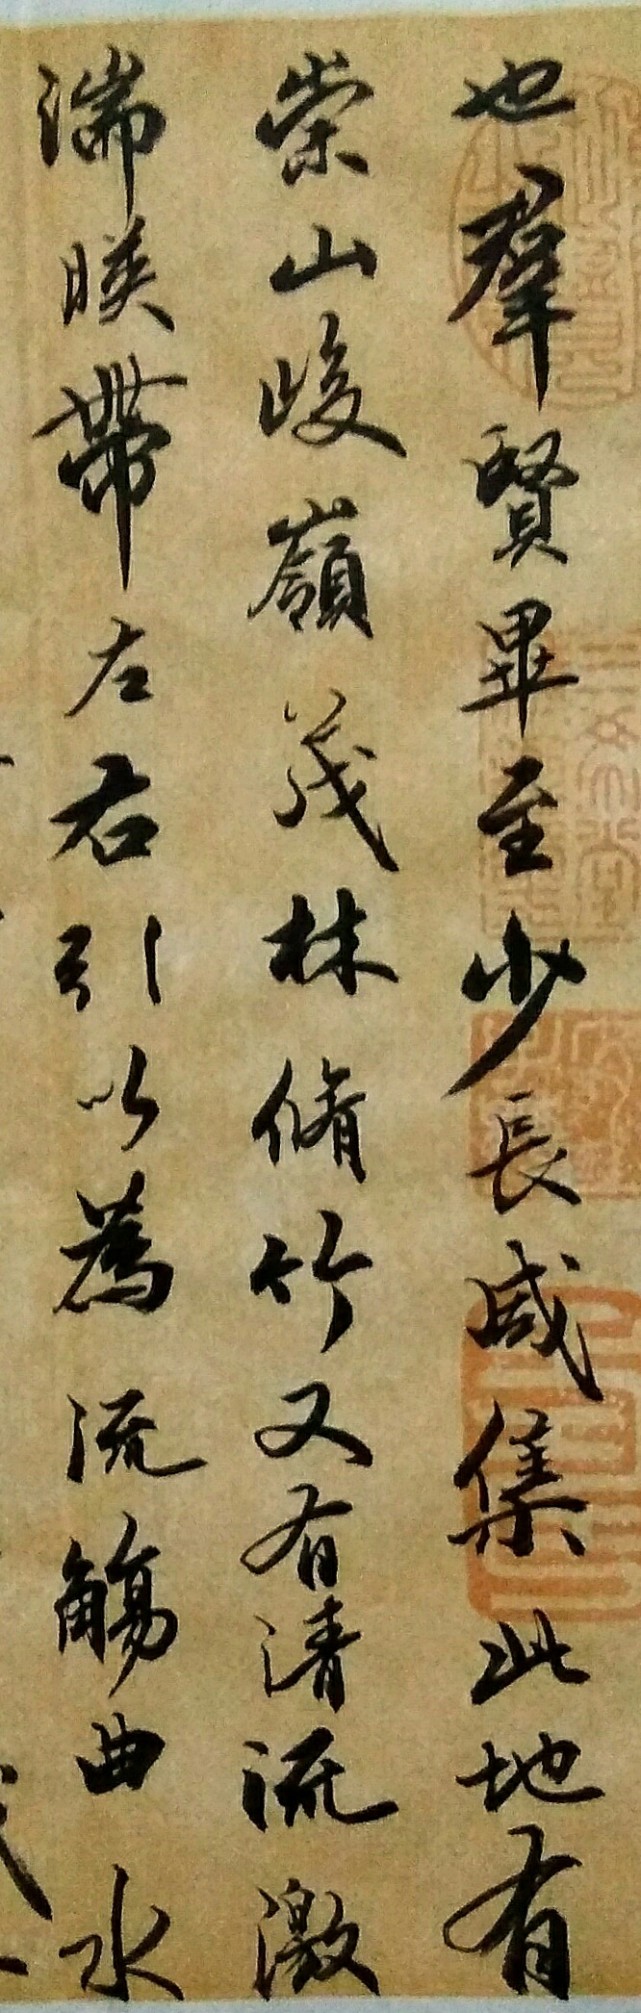 也羣賢畢至少長咸集此地有
崇山峻嶺茂林脩竹又有清流激
湍暎帶左右引以為流觴曲水